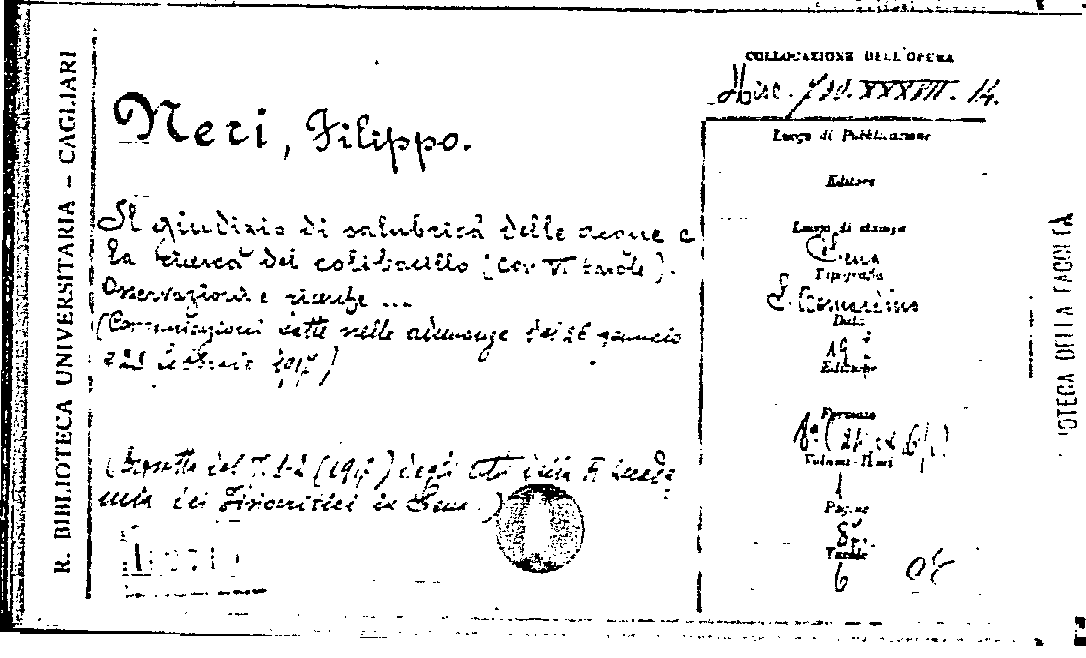 R. BIBLIOTECA UNIVERSITARIA - CAGLIARI
Neri, Filippo.
Il giudizio di salubrità delle acque e
la ricerca del colibacillo (con VI tavole).
Osservazioni e ricerche ...
(Comunicazioni fatte nelle adunanze del 26 gennaio
1917)
(Estratto dal N. 1-2 (1917) degli Atti della R. Accade
mia dei Fisiocritici in Siena.)
COLLOCAZIONE DELL'OPERA
Misc. XXXVII. 14.
Luogo di Pubblicazione
Editore
Luogo di stampa
Siena
Tipografia
S. Bernardino
Data
Edizione
Formato
8º
Volumi
1
Pagine
Tavole
6
OTECA DELLA FACOLTÀ